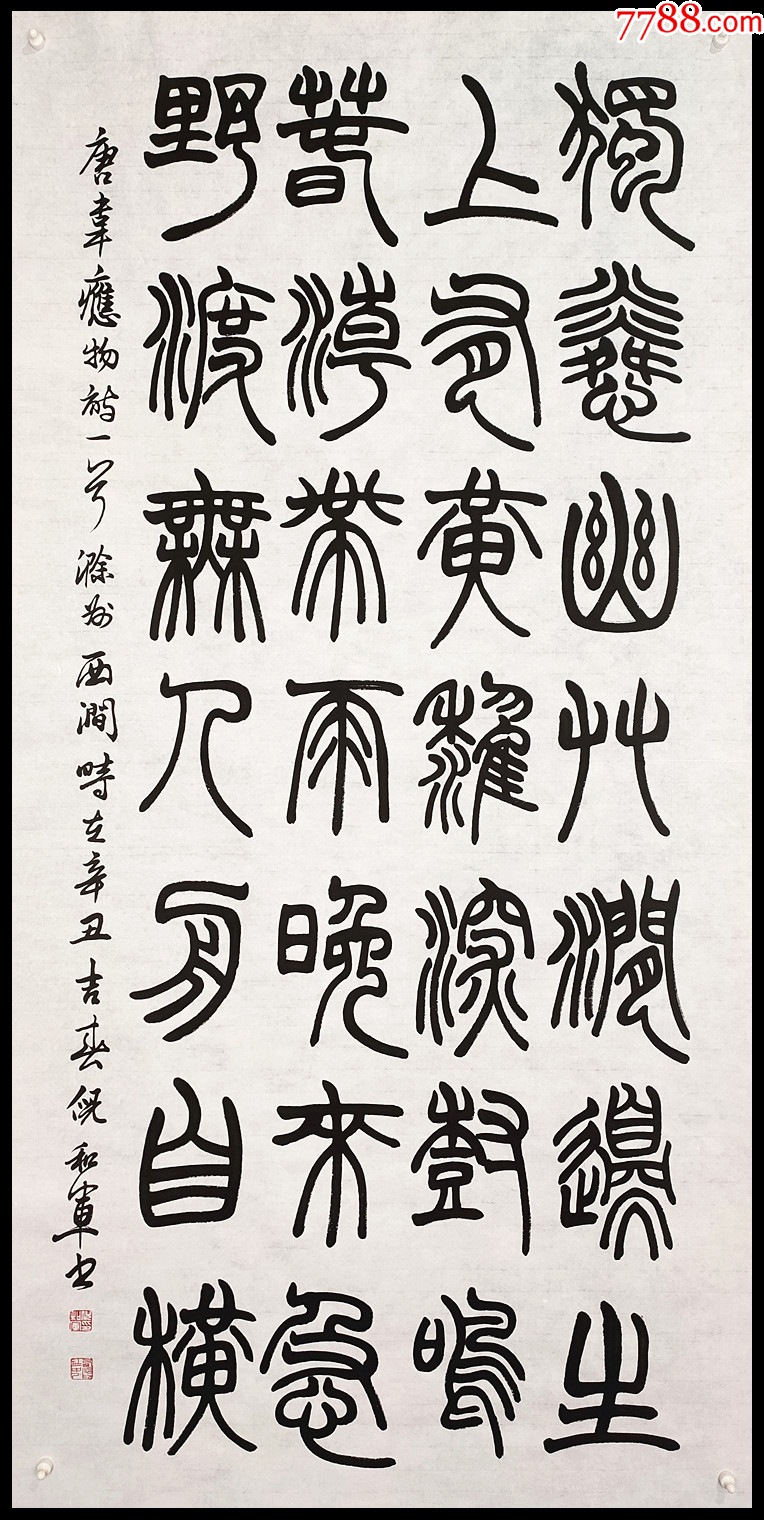 7788.com
獨憐幽艸澗邊生
上有黃鸝深樹鳴
春潮帶雨晚來急
野渡無人舟自橫
唐韋應物詩一首滁州西澗時在辛丑吉春倪和軍書